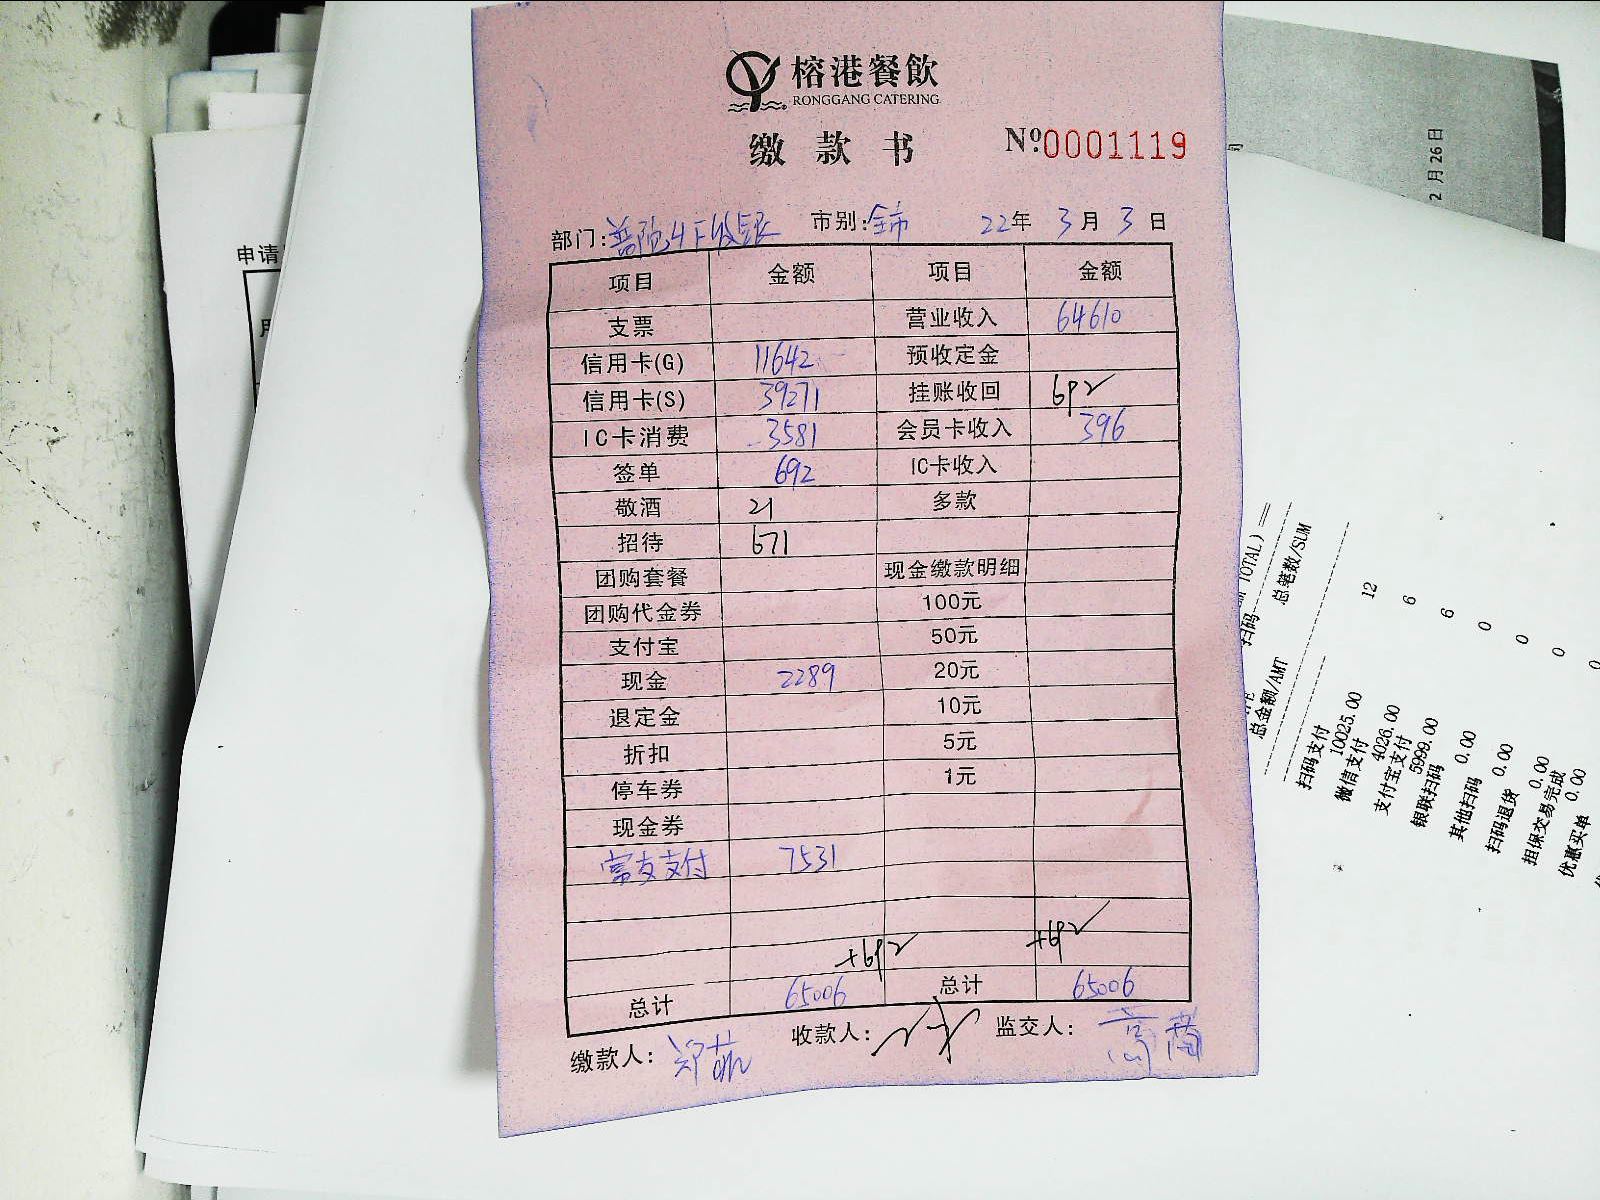 榕港餐飲
RONGGANG CATERING
缴款书 Nº0001119
部门:普陀4F收银 市别:全市 22年 3月 3日
项目 金额 项目 金额
支票 营业收入 64610
信用卡(G) 11642 预收定金
信用卡(S) 39271 挂账收回 692
IC卡消费 3581 会员卡收入 396
签单 692 IC卡收入
敬酒 21 多款
招待 671
团购套餐 现金缴款明细
团购代金券 100元
支付宝 50元
现金 2289 20元
退定金 10元
折扣 5元
停车券 1元
现金券
富友支付 7531
+692 +692
总计 65006 总计 65006
缴款人: 收款人: 监交人:
申请
用
2月26日
司
TOTAL) ==
扫码
总笔数/SUM
总金额/AMT
扫码支付
10025.00 12
微信支付
4026.00 6
支付宝支付
5999.00 6
银联扫码
0.00 0
其他扫码
0.00 0
扫码退货
0.00 0
担保交易完成
0.00 0
优惠买单